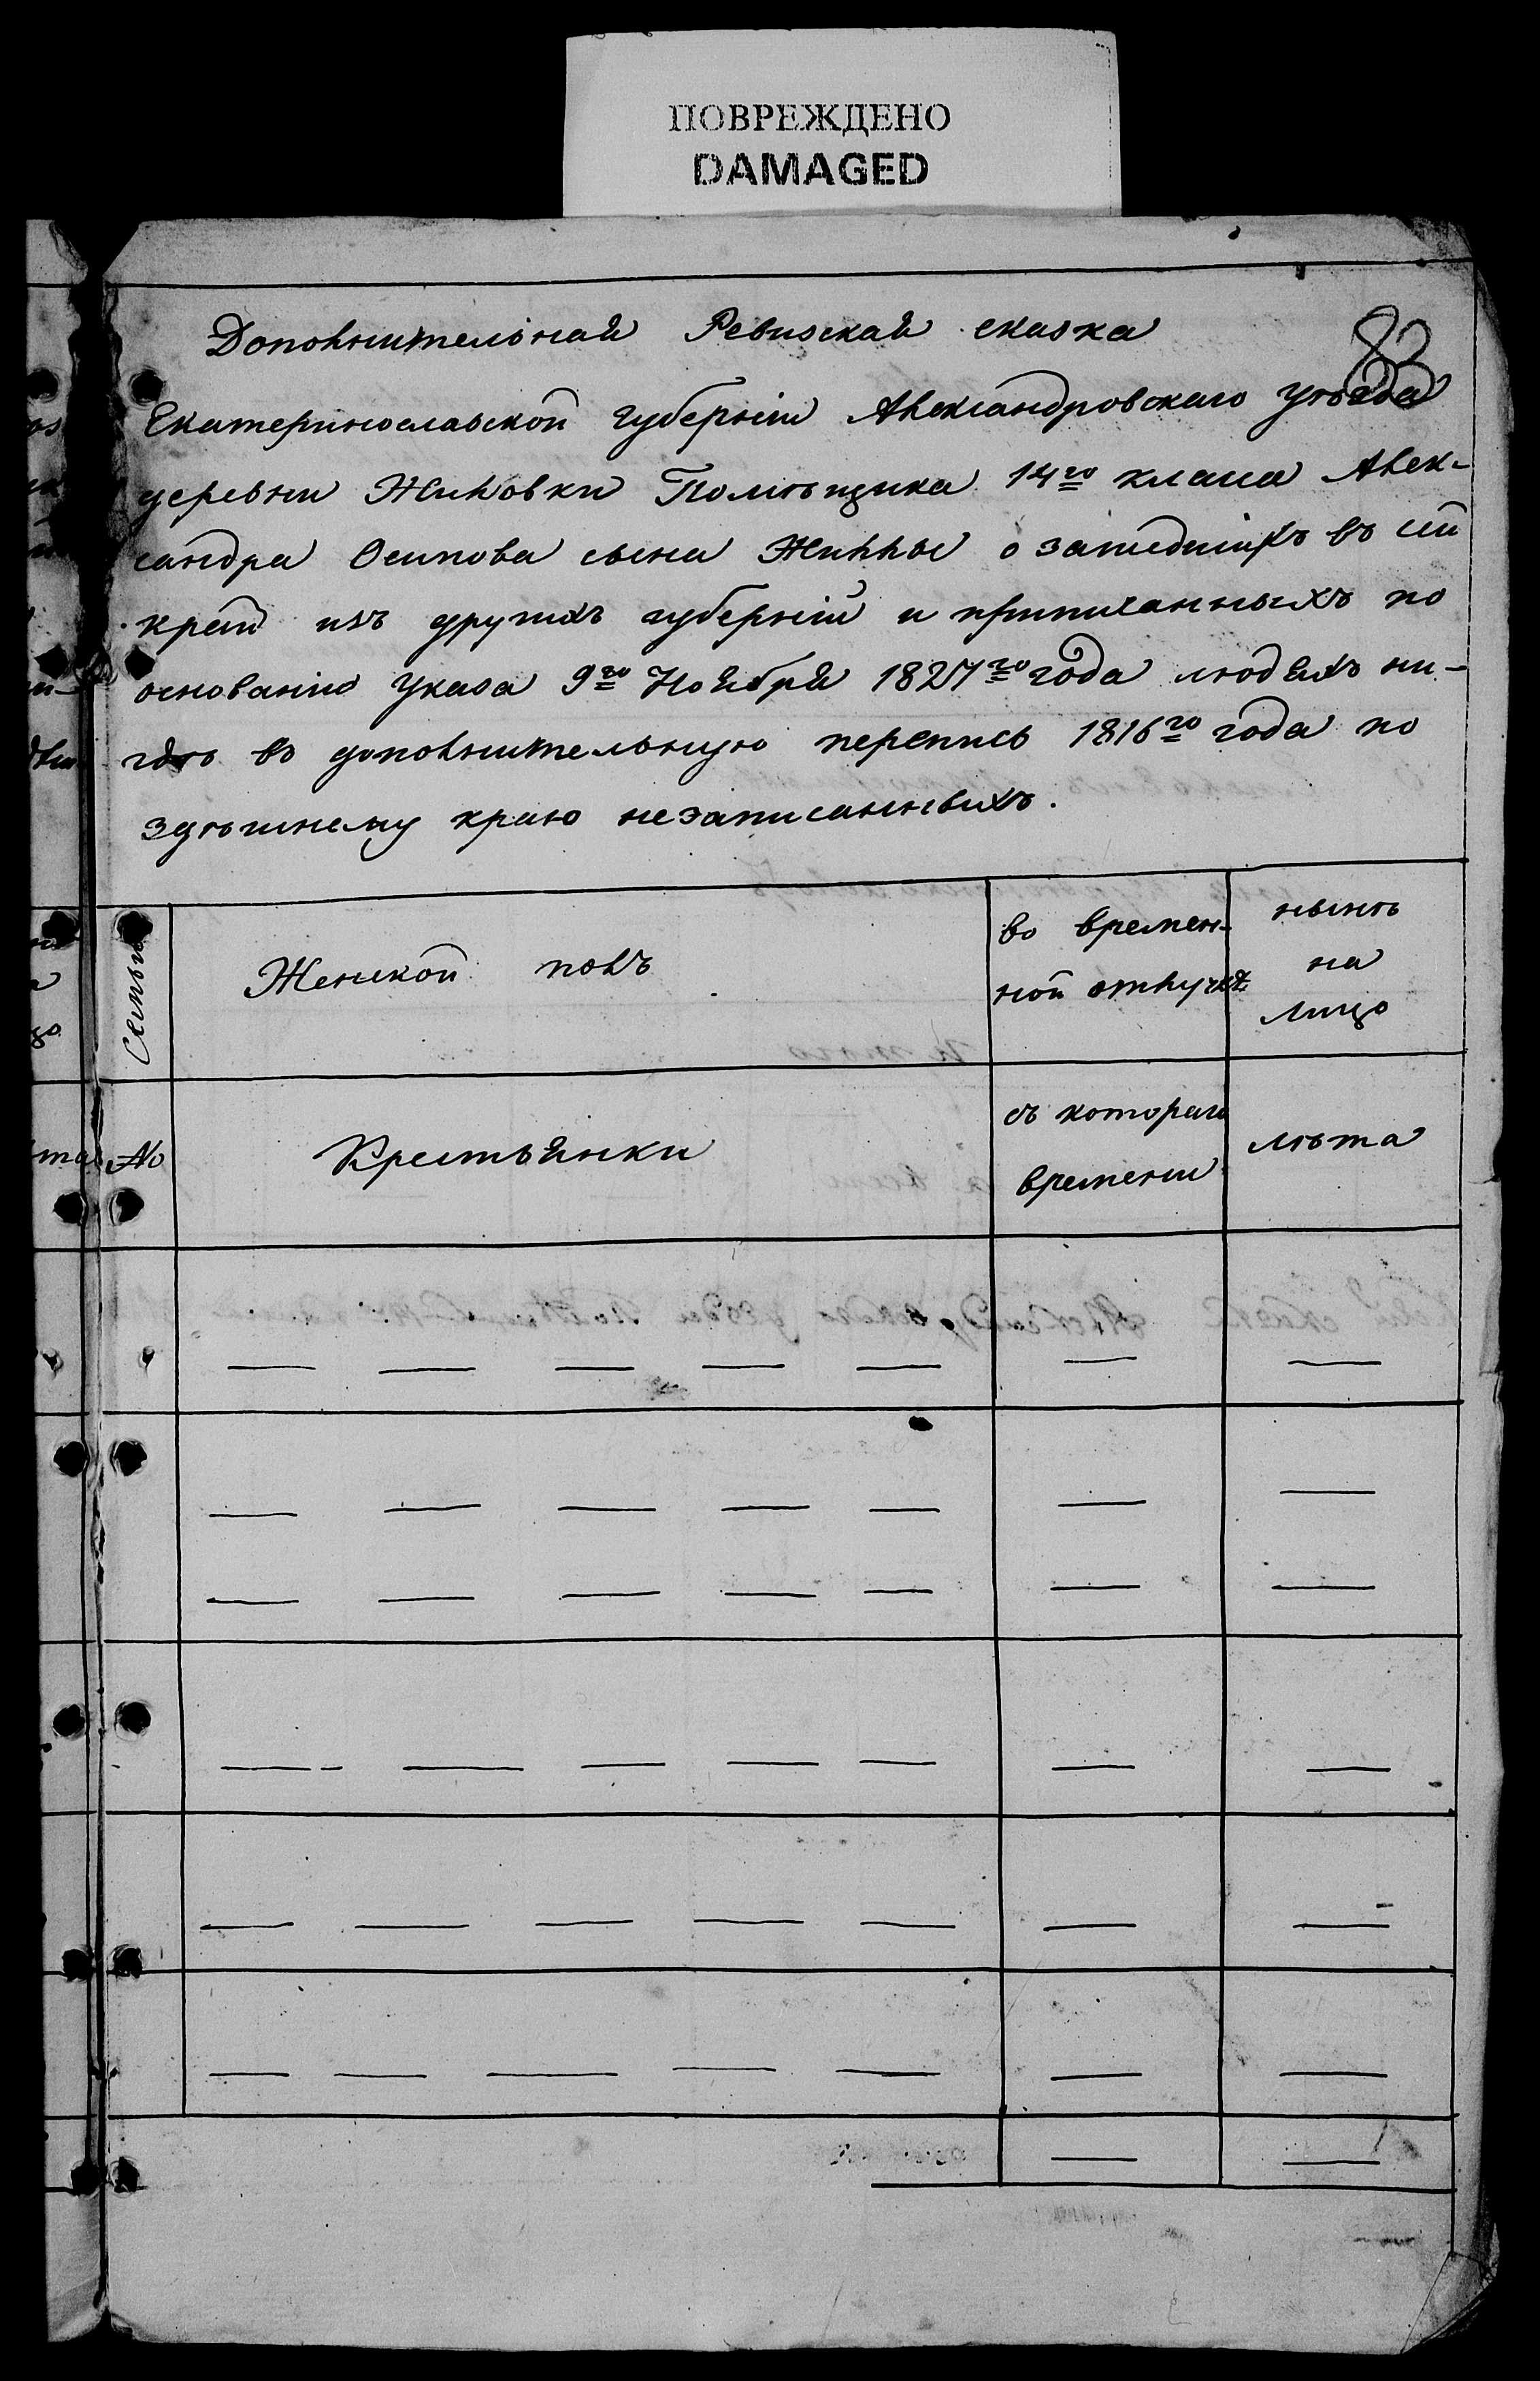 ПОВРЕЖДЕНО
DAMAGED
83
Дополнительная Ревизская сказка
Екатеринославской губерніи Александровскаго уѣзда
деревни Жиловки Помѣщика 14го класа Алек-
сандра Осипова сына Жиллы о зашедшихъ въ сей
край изъ другихъ губерній и приписанныхъ по
основанію указа 9го Ноября 1827го года людяхъ ни-
гдѣ въ дополнительную перепись 1816го года по
здѣшнему краю незаписанныхъ.
Семьи
Женской полъ
во времен-
ной отлучкѣ
нынѣ
на
лицо
№
Крестьянки
съ котораго
времени
лѣта